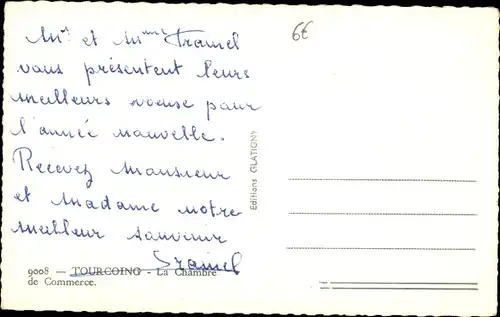 Mr et Mme Framel
vous présentent leurs
meilleurs voeuse pour
l'année nouvelle.
Recevez Monsieur
et Madame notre
meilleur souvenir
Framel
9008 — TOURCOING - La Chambre
de Commerce.
Editions GLATIGNY
6€